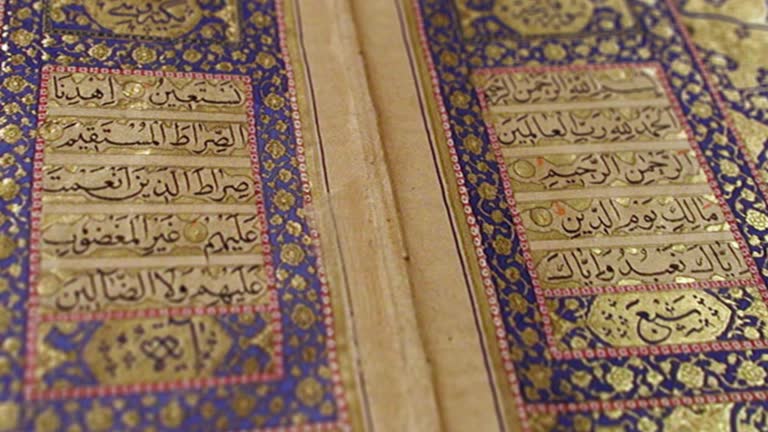 بِسْمِ اللّٰهِ الرَّحْمٰنِ الرَّحِيمِ
اَلْحَمْدُ لِلّٰهِ رَبِّ الْعَالَمِينَ
اَلرَّحْمٰنِ الرَّحِيمِ
مَالِكِ يَوْمِ الدِّينِ
اِيَّاكَ نَعْبُدُ وَاِيَّاكَ
سبع
نَسْتَعِينُ اِهْدِنَا
الصِّرَاطَ الْمُسْتَقِيمَ
صِرَاطَ الَّذِينَ اَنْعَمْتَ
عَلَيْهِمْ غَيْرِ الْمَغْضُوبِ
عَلَيْهِمْ وَلَا الضَّالِّينَ